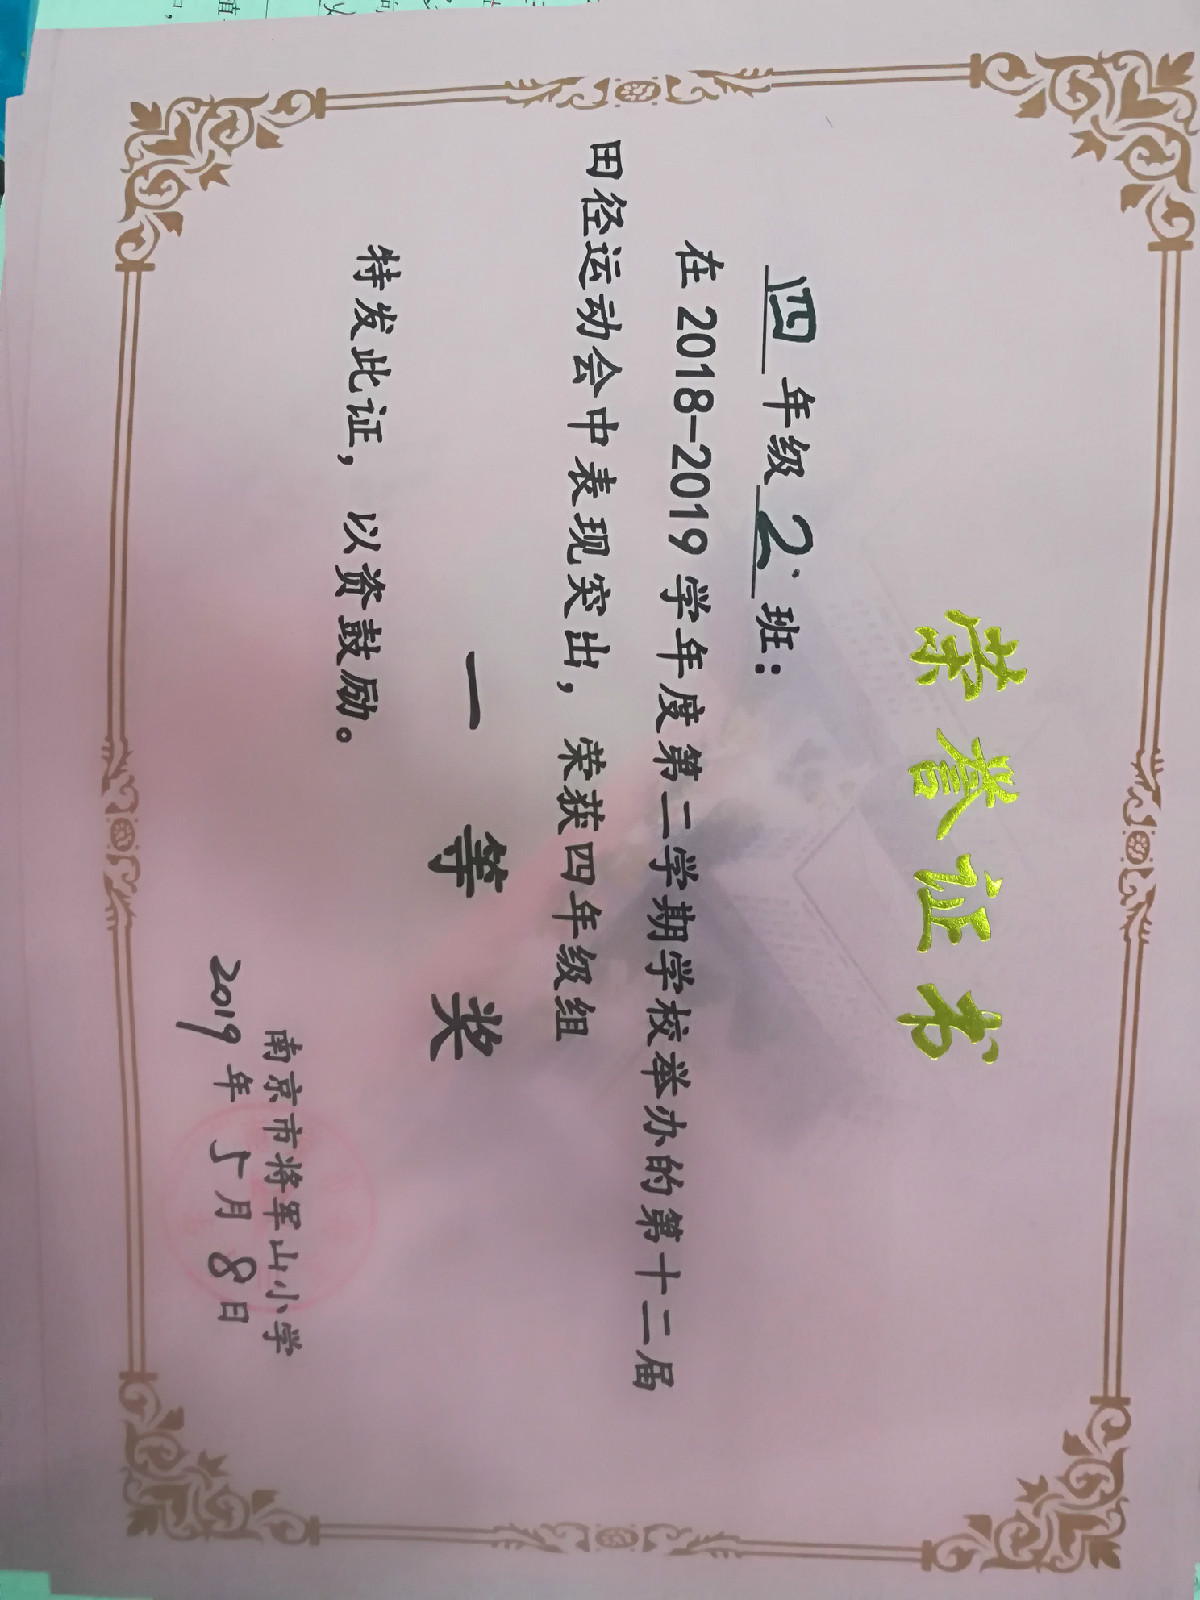 荣誉证书
四年级2班：
在2018-2019学年度第二学期学校举办的第十二届
田径运动会中表现突出，荣获四年级组
一等奖
特发此证，以资鼓励。
南京市将军山小学
2019年5月8日